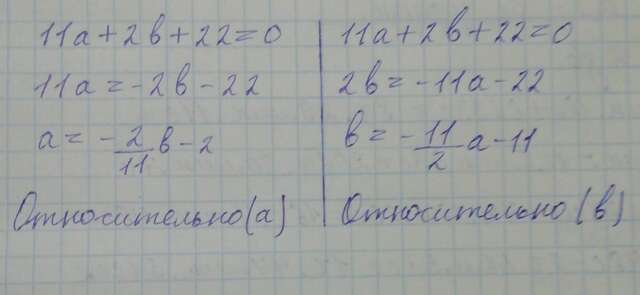 11a+2b+22=0
11a=-2b-22
a=-2/11 b-2
Относительно(a)
11a+2b+22=0
2b=-11a-22
b=-11/2 a-11
Относительно (b)